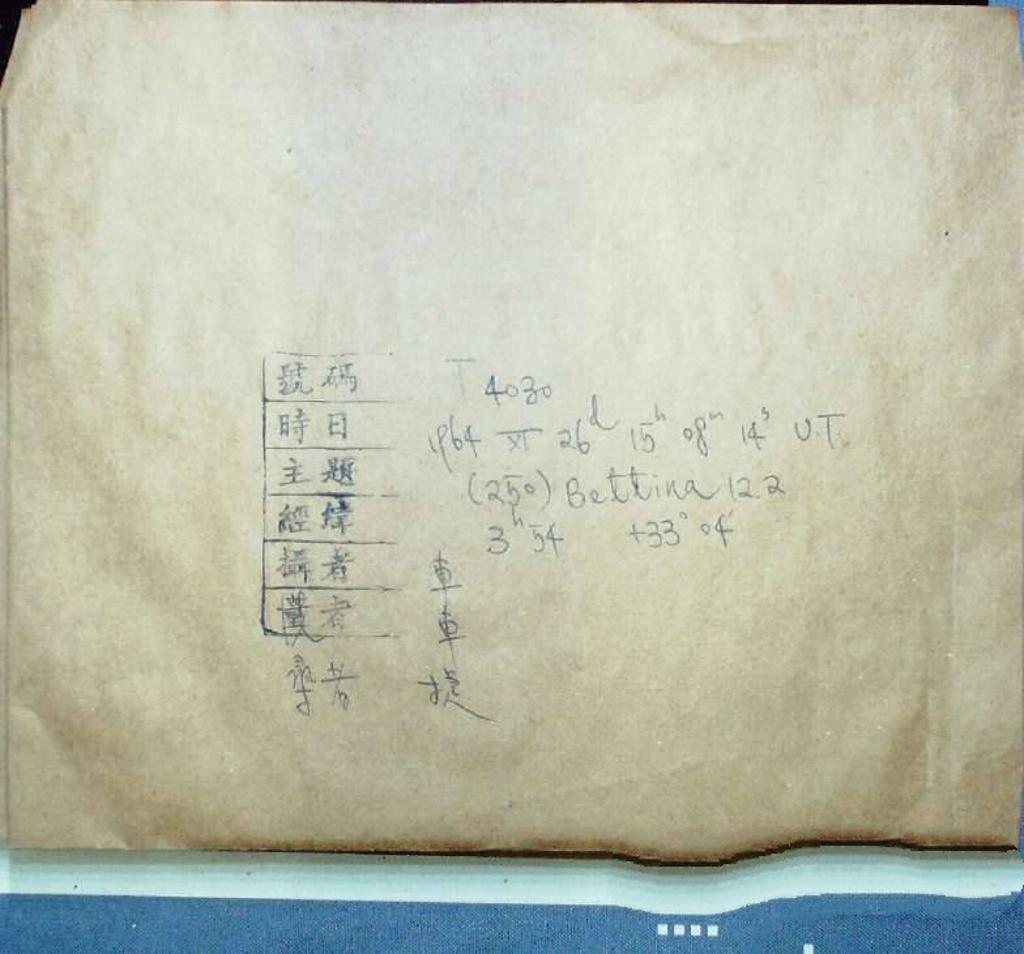 號碼 T 4030
時日 1964 XI 26ᵈ 15ʰ 08ᵐ 14ˢ U.T.
主題 (250) Bettina 12.2
經緯 3ʰ 54 +33° 04'
攝者 車
者 車
尋者 捷